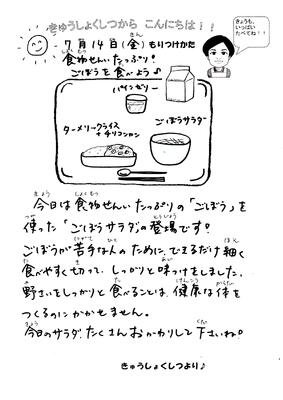 きゅうしょくしつから こんにちは!!
7月14日(金)もりつけかた
食物せんいたっぷり!
ごぼうを食べよう♪
きょうも、
いっぱい
たべてね!!
パインゼリー
ごぼうサラダ
ターメリックライス
+チリコンカン
今日は食物せんいたっぷりの「ごぼう」を
使った「ごぼうサラダ」の登場です!
ごぼうが苦手な人のために、できるだけ細く
食べやすく切って、しっかりと味つけをしました。
野さいをしっかりと食べることは、健康な体を
つくるのにかかせません。
今日のサラダ、たくさんおかわりして下さいね。
きゅうしょくしつより♪